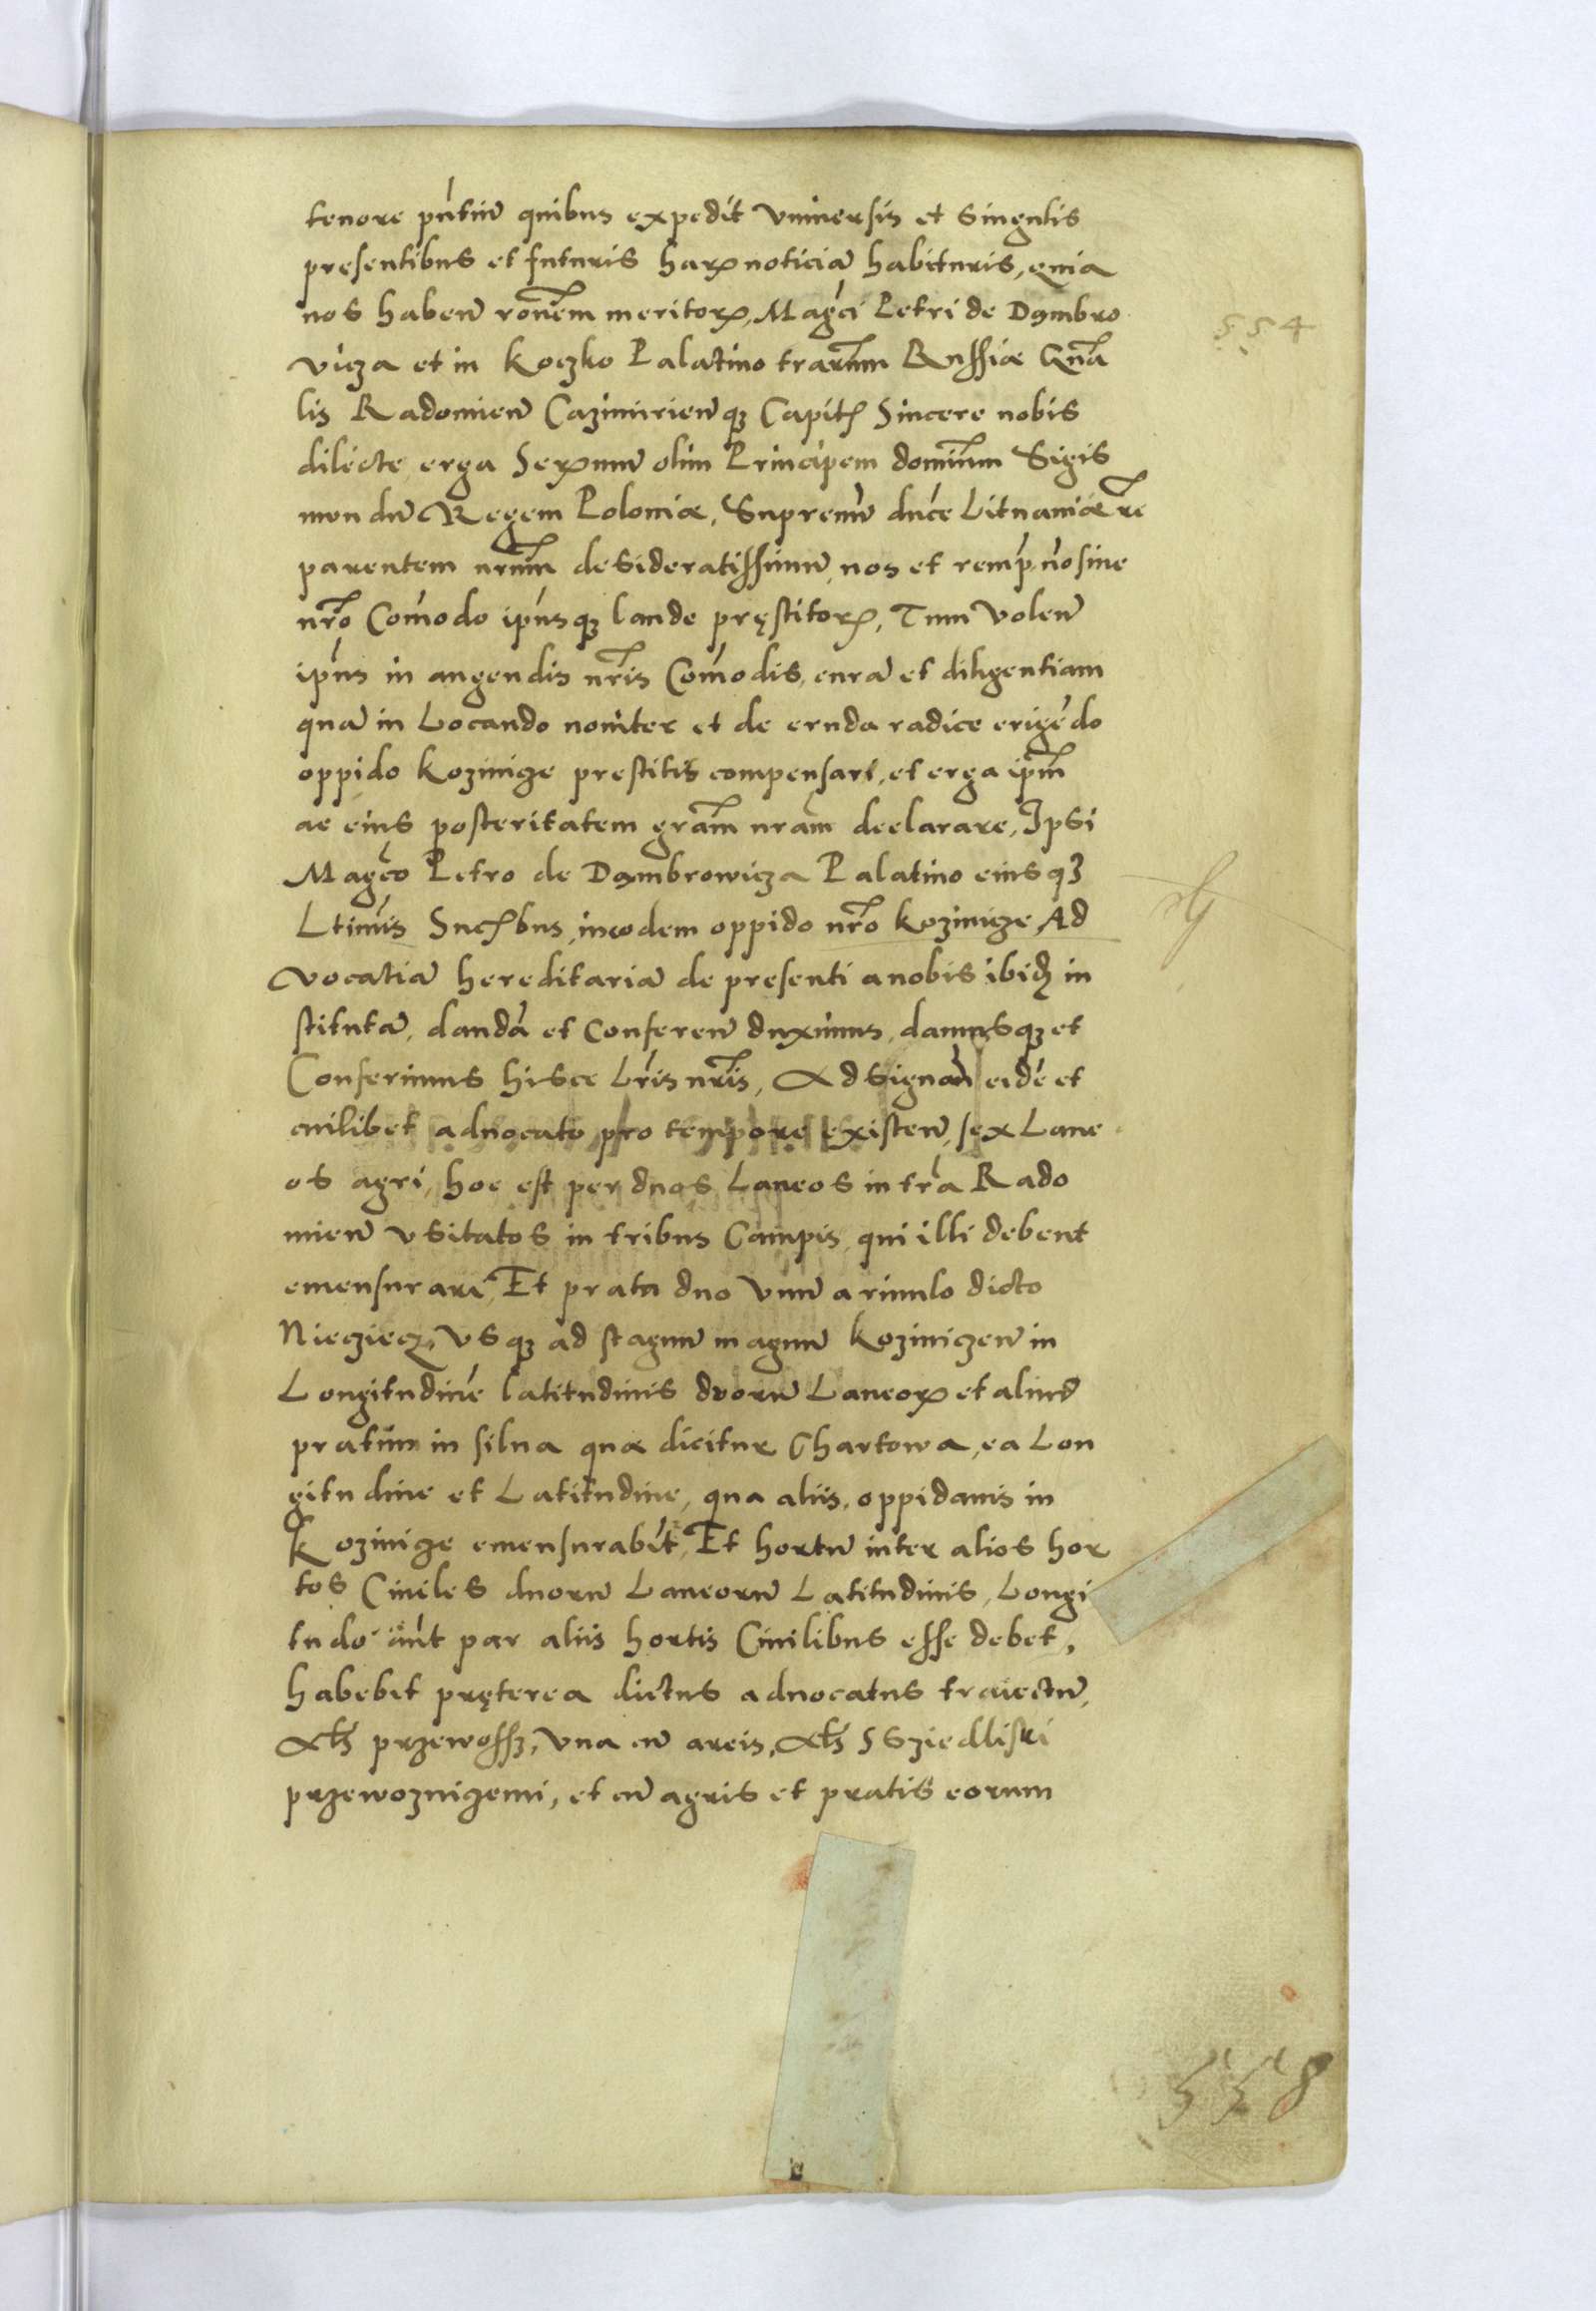 tenore pn̄tiū quibus expedit vniuersis et Singulis
presentibus et futuris harꝝ noticiā habituris, quia
nos habeñ ronēm meritorꝝ, Magci Petri de Dąmbro
554
vicza et in Koczko Palatino trarum Russiæ Gn̄a
lis Radomieñ Cazimirieñqꝫ Capitꝭ Sincere nobis
dilecte erga Serꝫmū olim Principem dominum Sigis
mundū Regem Poloniæ, Supremū ducē Lituaniæ ꝛc
parentem nrum desideratissimū, nos et remp̄ nō sine
nr̄o Com̄odo ipiusqꝫ laude pręstitorꝝ, Tum voleñ
ipius in augendis nr̄is Com̄odis, curā et diligentiam
quā in Locando nouiter et de cruda radice erigēdo
oppido Kozinicze prestitis compensare, et erga ipm̄
ac eius posteritatem gram̄ nram̄ declarare, Ipsi
Magco Petro de Dąmbrowicza Palatino eiusqꝫ
Ltimis Succꝭbus, in eodem oppido nr̄o Kozinicze, Ad
vocatiā hereditariā de presenti a nobis ibidꝫ in
stitutā, dandā et Confereñ duximus, damusqꝫ et
Conferimus hisce Lr̄is nr̄is, Adsignañ eidē et
cuilibet aduocato pro tempore existeñ, sex Lane
os agri, hoc est per duos Laneos in tra Rado
mieñ vsitatos in tribus Campis, qui illi debent
emensurari, Et prata duo vnū a riuulo dicto
Niecziecz, vsqꝫ ad stagnū magnū Koziniczeñ in
Longitudine latitudinis duorū Laneorꝝ et aliud
pratum in silua quæ dicitur Chartowa, ea Lon
gitudine et Latitudine, qua aliis oppidanis in
Kozinicze emensurabit, Et hortū inter alios hor
tos Ciuiles duorū Laneorū Latitudinis, Longi
tudo aūt par aliis hortis Ciuilibus esse debet,
habebit pręterea dictus aduocatus traiectū,
als przewossz, vna cū areis, als s Sziedliski
przewozniczemi, et cū agris et pratis eorum
558